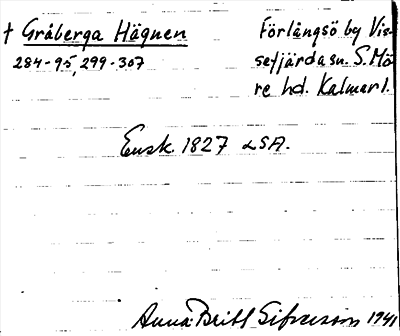 † Gråberga Hägnen
284-95, 299-307
Förlångsö by Vis-
sefjärda sn. S. Mö
re hd. Kalmar l.
Ensk. 1827 LSA.
Anna-Britt Sifverson 1941